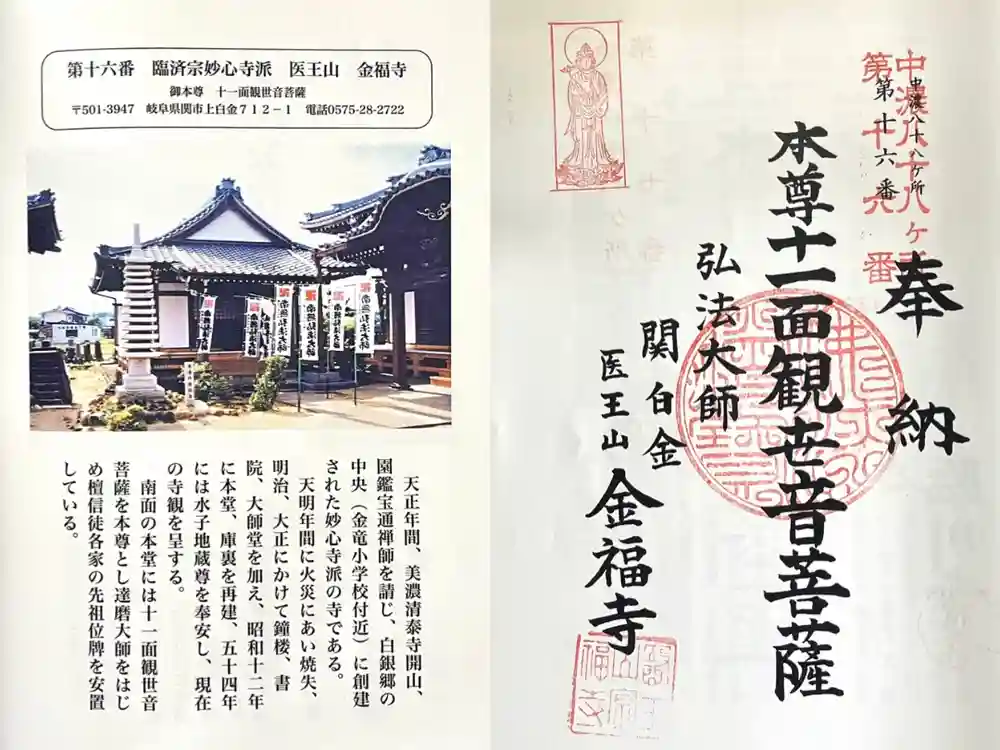 第十六番　臨済宗妙心寺派　医王山　金福寺
御本尊　十一面観世音菩薩
〒501-3947　岐阜県関市上白金７１２−１　電話0575-28-2722
南無弘法大師
南無弘法大師
南無弘法大師
南無弘法大師
　天正年間、美濃清泰寺開山、
園鑑宝通禅師を請じ、白銀郷の
中央（金竜小学校付近）に創建
された妙心寺派の寺である。
　天明年間に火災にあい焼失、
明治、大正にかけて鐘楼、書
院、大師堂を加え、昭和十二年
に本堂、庫裏を再建、五十四年
には水子地蔵尊を奉安し、現在
の寺観を呈する。
　南面の本堂には十一面観世音
菩薩を本尊とし達磨大師をはじ
め檀信徒各家の先祖位牌を安置
している。
奉納
中濃八十八ヶ所
第十六番
中濃八十八ヶ
第十六番
本尊十一面観世音菩薩
弘法大師
関白金
医王山 金福寺